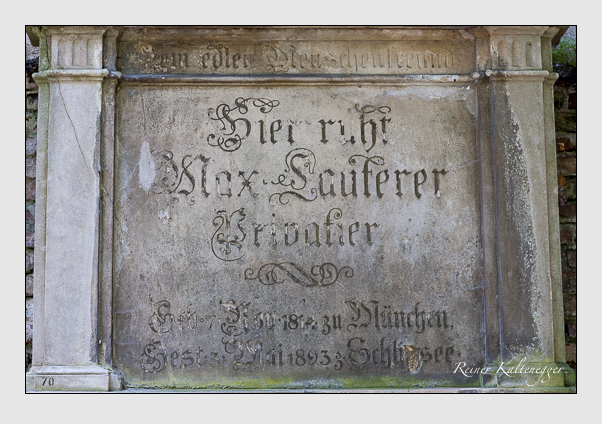 Dem edlen Menschenfreund
Hier ruht
Max Lauterer
Privatier
zu München,
Gest. Mai 1893 Schliersee
70
Reiner Kaltenegger